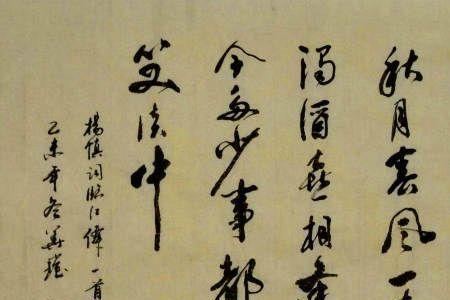 秋月春风一
濁酒喜相逢
今多少事都
笑谈中
楊慎词臨江僊一首
乙未年冬